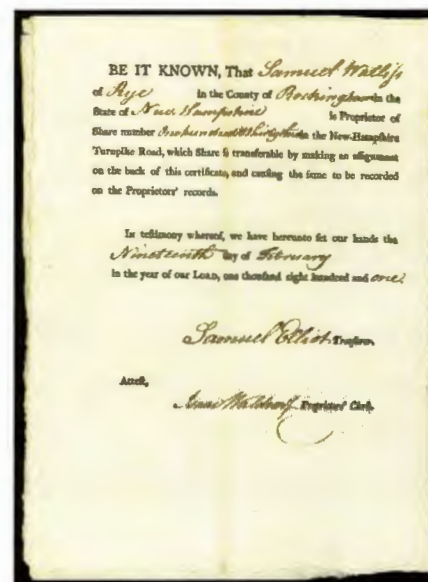 BE IT KNOWN, That Samuel Walliſs
of Rye in the County of Rockingham in the
State of New Hampshire is Proprietor of
Share number Two hundred & thirty in the New-Hampſhire
Turnpike Road, which Share is tranſferable by making an aſſignment
on the back of this certificate, and cauſing the ſame to be recorded
on the Proprietors' records.
In teſtimony whereof, we have hereunto ſet our hands the
Nineteenth day of February
in the year of our LORD, one thouſand eight hundred and one.
Samuel Elliot Treaſurer.
Atteſt,
Proprietors' Clerk.